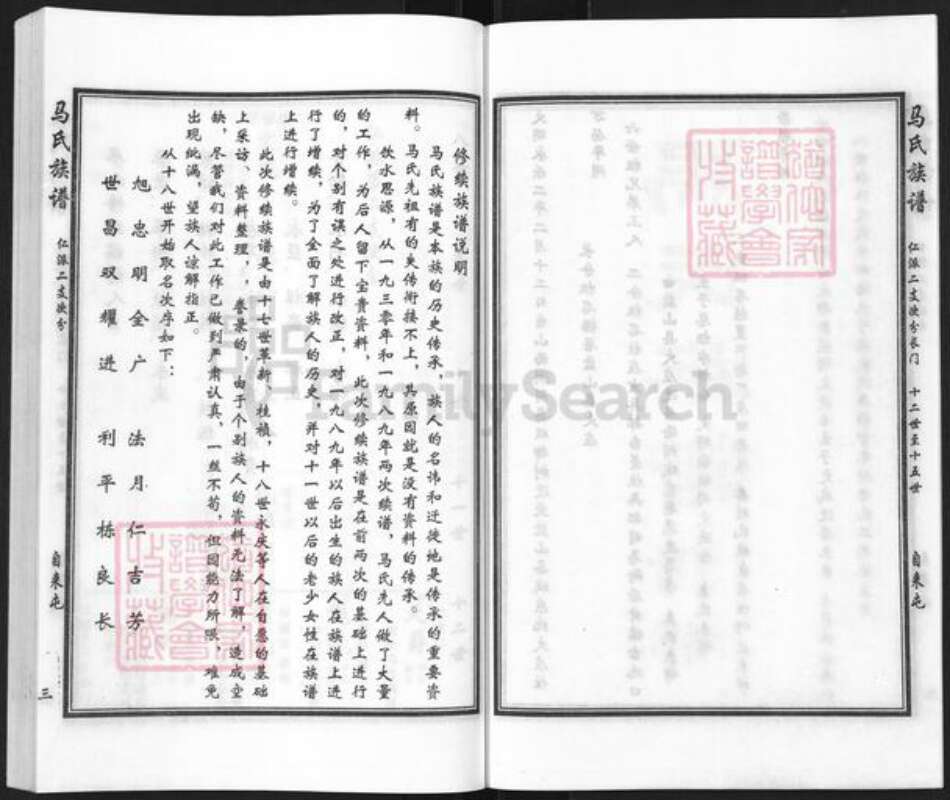 马氏族谱 仁派二支次分长门 十二世至十五世 自来屯
修续族谱说明
马氏族谱是本族的历史传承，族人的名讳和迁徒地是传承的重要资
料。马氏先祖有的失传衔接不上，其原因就是没有资料的传承。
饮水思源，从一九三零年和一九八九年两次续谱，马氏先人做了大量
的工作，为后人留下宝贵资料，此次修续族谱是在前两次的基础上进行
的，对个别有误之处进行改正，对一九八九年以后出生的族人在族谱上进
行了增续，为了全面了解族人的历史，并对十一世以后的老少女性在族谱
上进行增续。
此次修续族谱是由十七世革新、桂桢，十八世永庆等人在自愿的基础
上采访、资料整理、誊录的，由于个别族人的资料无法了解，造成空
缺，尽管我们对此工作已做到严肃认真，一丝不苟，但因能力所限，难免
出现纰漏，望族人谅解指正。
从十八世开始取名次序如下：
旭忠明全广 法月仁吉芳
世昌双耀进 利平栋良长
马氏族谱 仁派二支次分 自来屯 三
FamilySearch